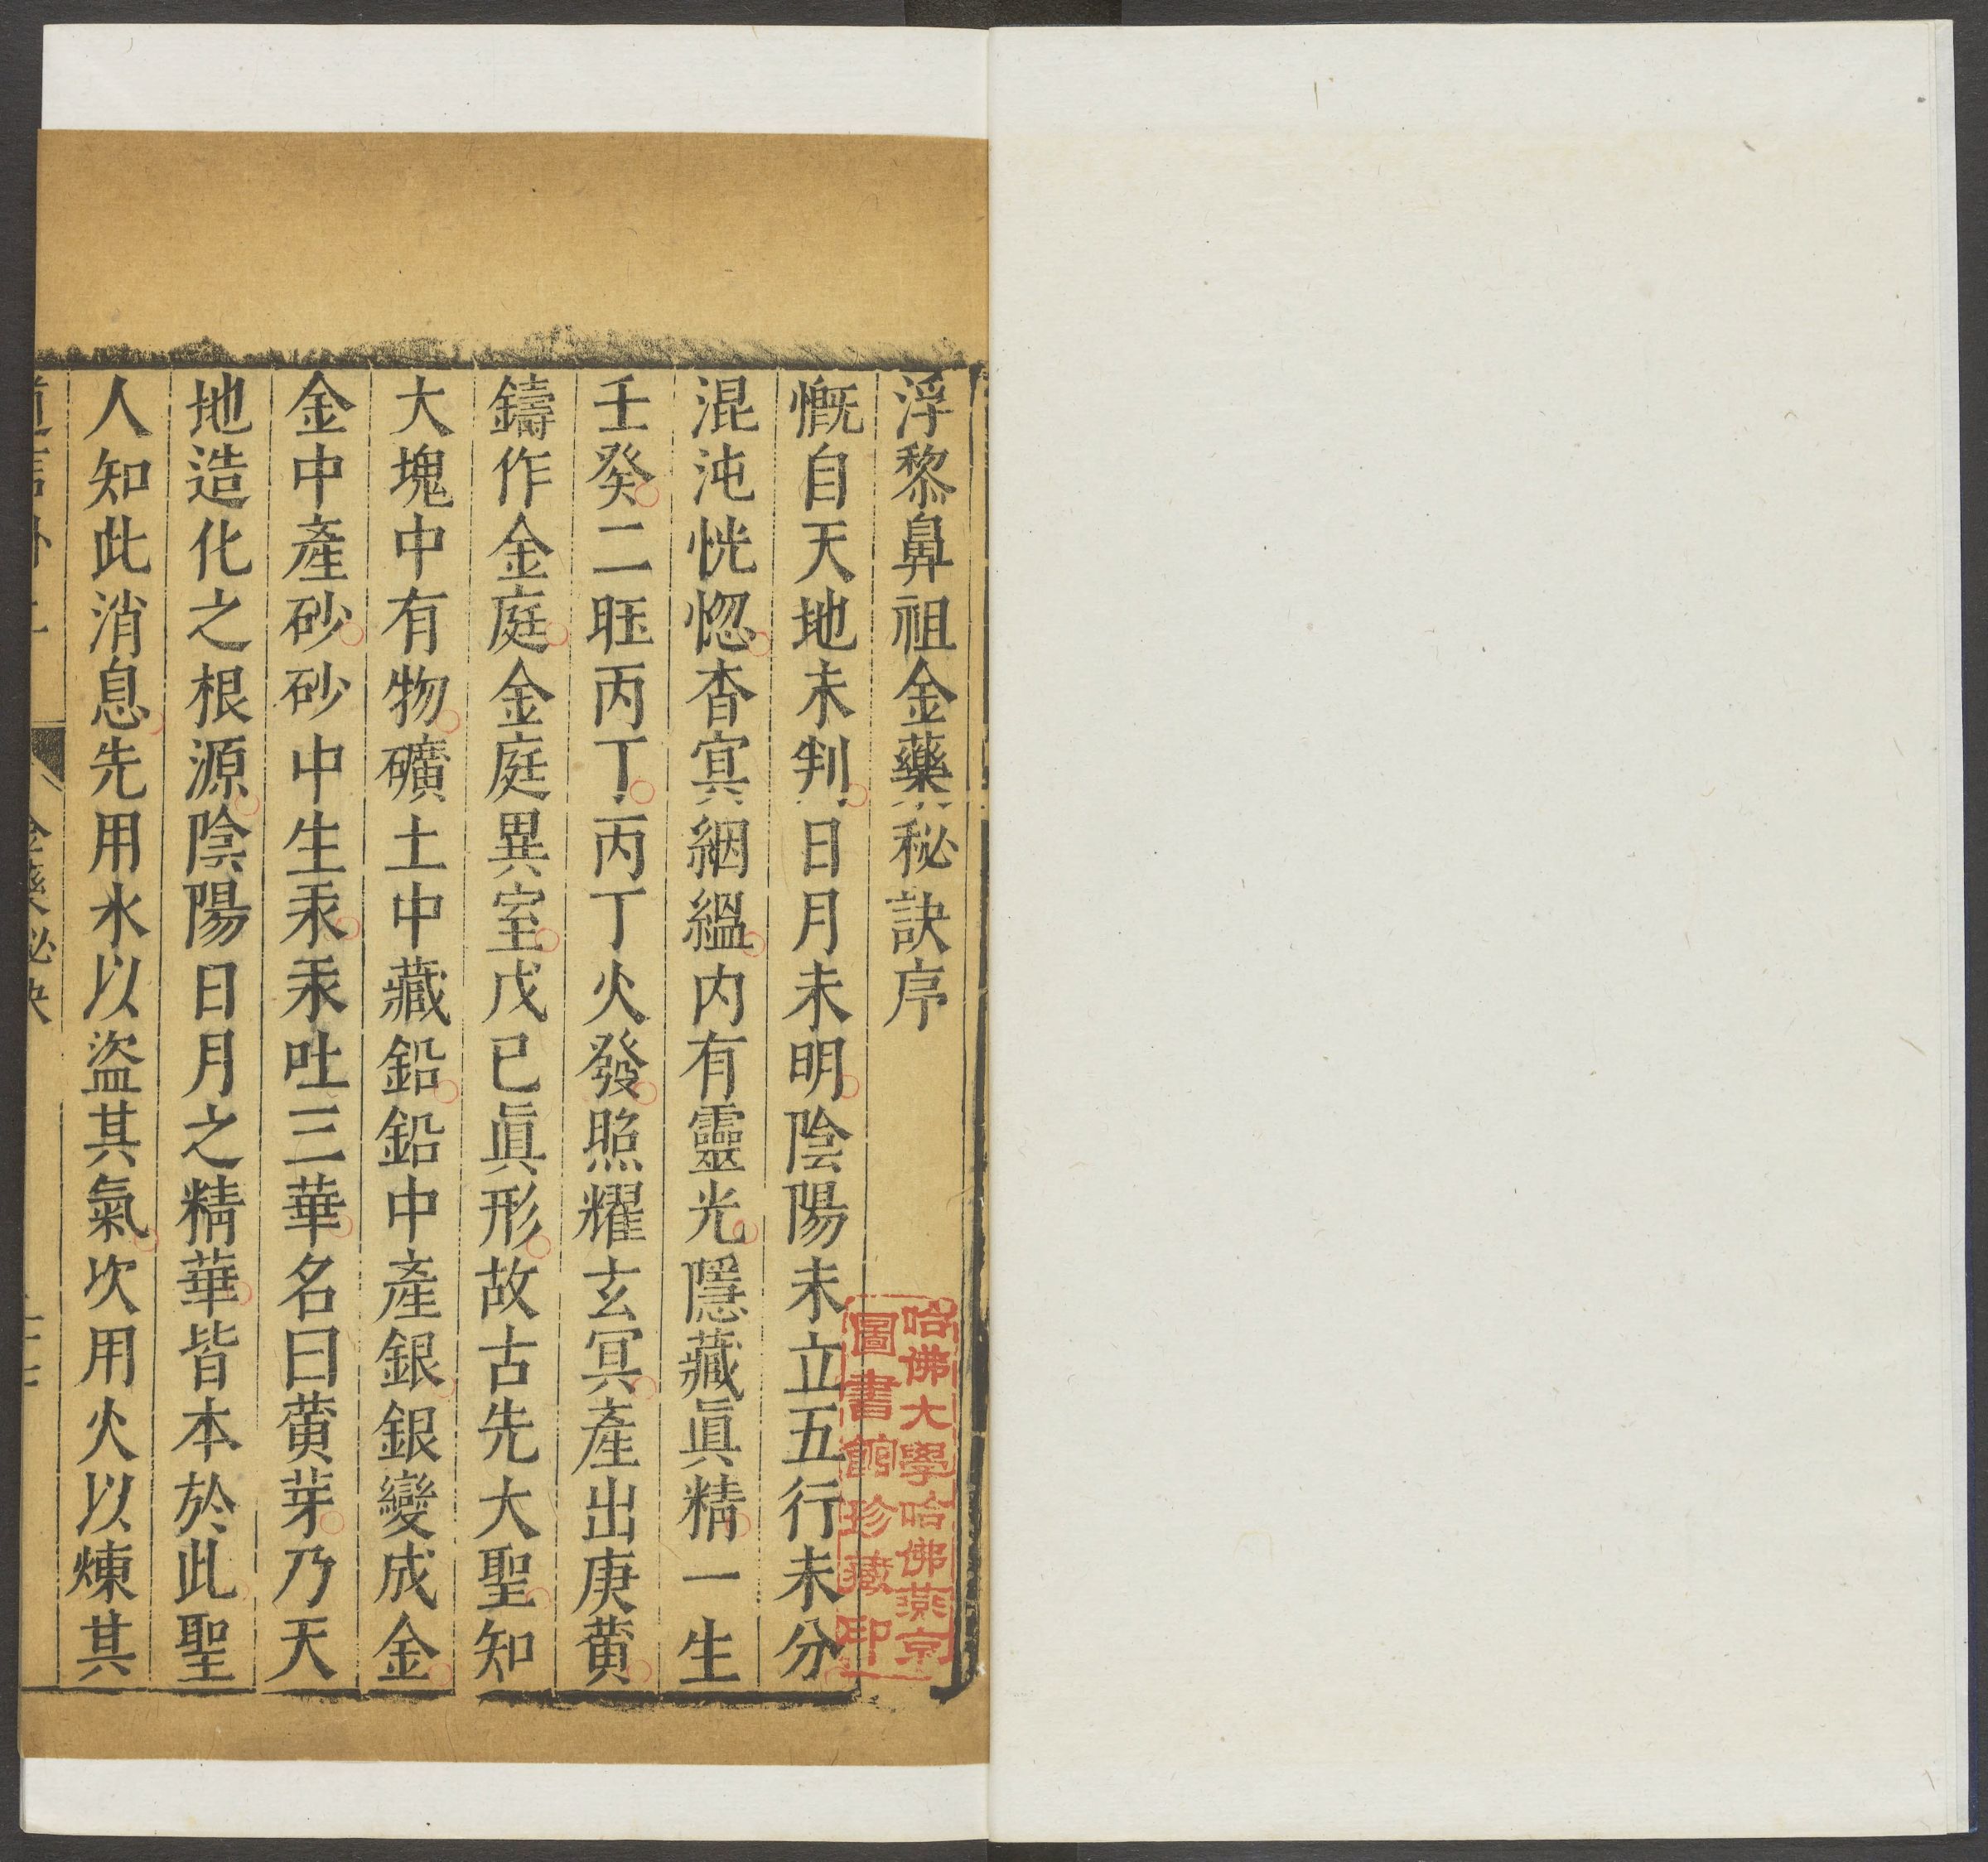 浮黎鼻祖金藥秘訣序
慨自天地未判日月未明陰陽未立五行未分
混沌恍惚杳冥絪縕內有靈光隱藏眞精一生
壬癸二旺丙丁丙丁火發照耀玄冥產出庚黃
鑄作金庭金庭異室戊已眞形故古先大聖知
大塊中有物礦土中藏鉛鉛中產銀銀變成金
金中產砂砂中生汞汞吐三華名曰黃芽乃天
地造化之根源陰陽日月之精華皆本於此聖
人知此消息先用水以盜其氣次用火以煉其
哈佛大學哈佛燕京
圖書館珍藏印